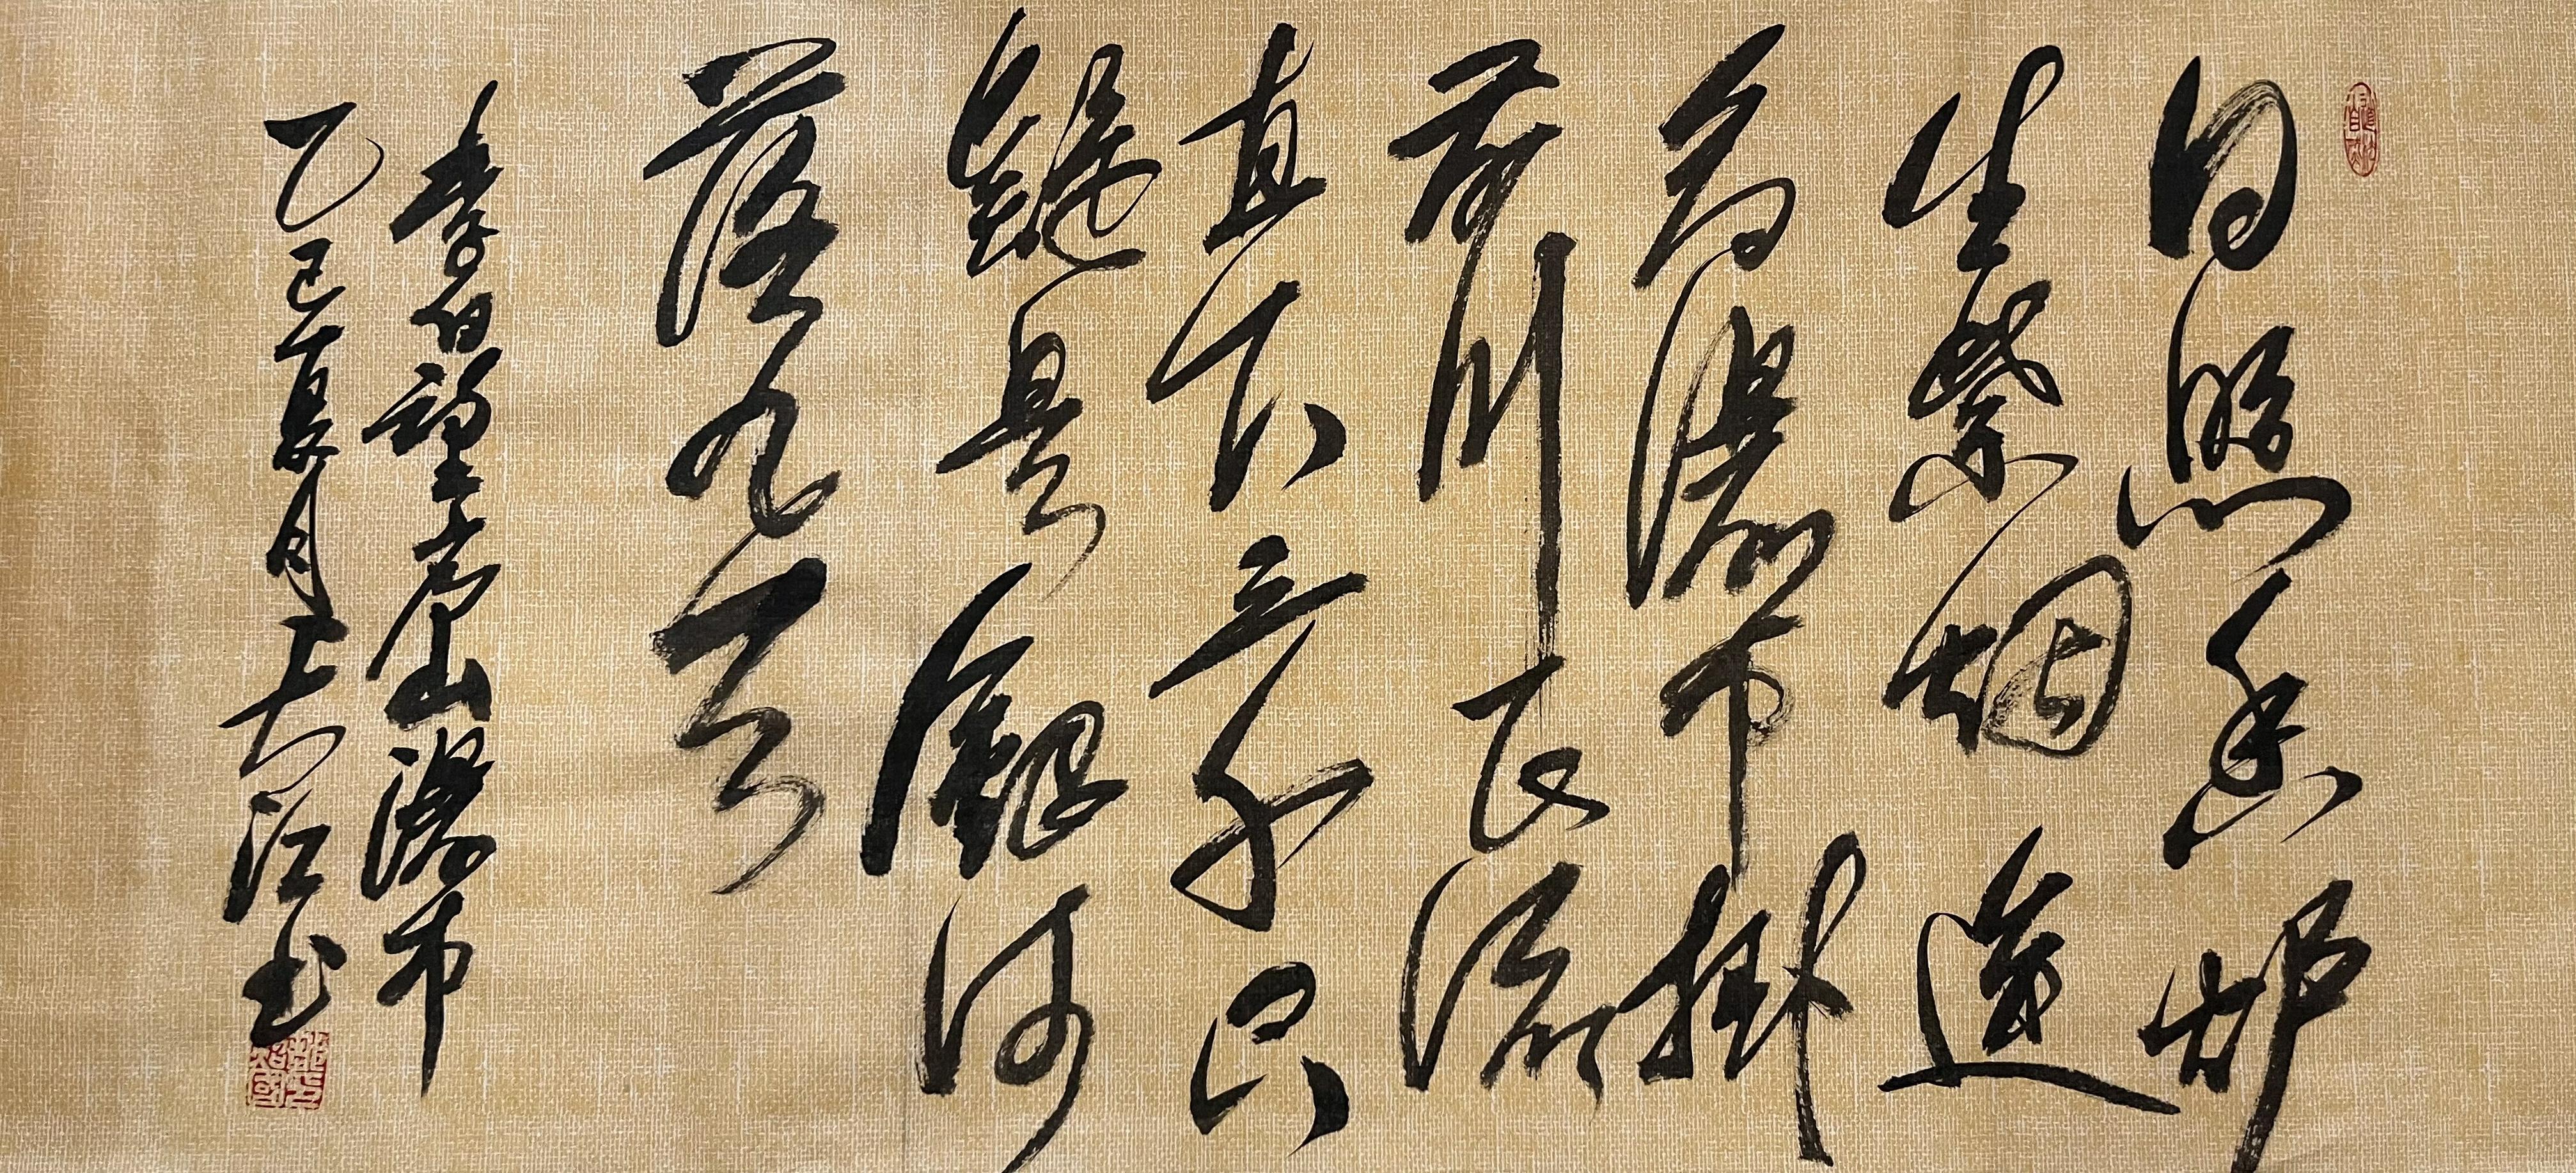 日照香炉
生紫烟遥
看瀑布掛
前川飞流
直下三千尺
疑是银河
落九天
李白望庐山瀑布
乙巳夏月江书